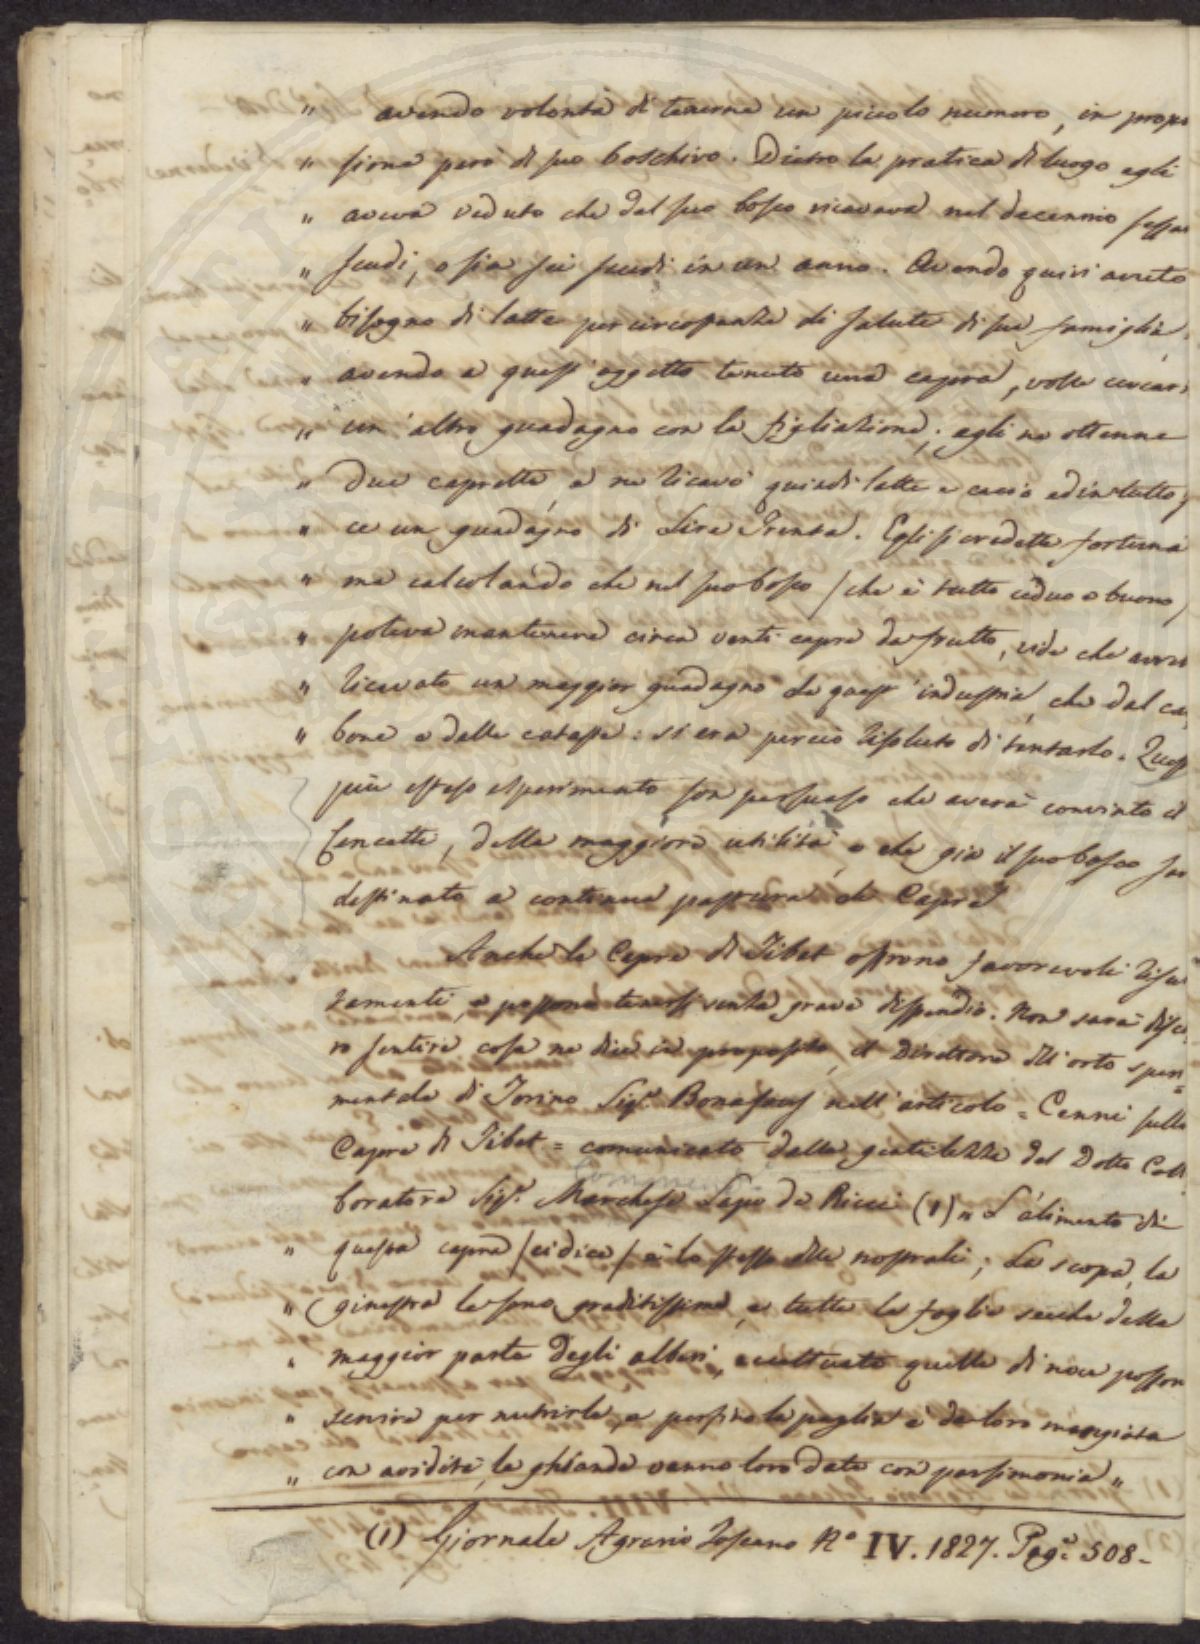 " avendo volontà di tenerne un piccolo numero, in propor
" sione però di suo boschivo. Dietro la pratica di luogo egli
" aveva veduto che dal suo bosco ricavava nel decennio sessan
" scudi, o sia sei scudi in un anno. Avendo quivi avuto
" bisogno di latte per circostanze di salute di sua famiglia,
" avendo a quest'oggetto tenuto una capra, volle cercar
" un'altro guadagno con la figliazione; egli ne ottenne
" due caprette, e ne ricavò quindi latte e cacio ed in tutto f
" ce un guadagno di Lire Trenta. Egli si credette fortuna
" ma calcolando che nel suo bosco (che è tutto ceduo e buono)
" poteva mantenere circa venti capre da frutto, vide che avreb
" ricavato un maggior guadagno da quest'industria, che dal car
" bone e dalle cataste: si era perciò risoluto di tentarlo. Quest
più esteso esperimento son persuaso che averà convinto il
Cencetti, della maggiore utilità, e che già il suo bosco sar
destinato a continua pastura di Capre
Anche le Capre di Tibet offrono favorevoli risul
tamenti, e possono tenersi senza grave dispendio. Non sarà disca
ro sentire cosa ne dice in proposito il Direttore dell'orto speri=
mentale di Torino Sigr. Bonafous nell'articolo = Cenni sulle
Capre di Tibet = comunicato dalla gentilezza del Dotto Coll
boratore Sigr. Marchese Lapo de Ricci (1) " L'alimento di
" questa capra (ei dice) è lo stesso delle nostrali; la scopa, la
" ginestra le sono graditissime, e tutte le foglie secche della
" maggior parte degli alberi, eccettuate quelle di noce posson
" servire per nutrirle, e perfino la paglia è da loro mangiata
" con avidità, le ghiande vanno loro date con parsimonia "
(1) Giornale Agrario Toscano No IV. 1827. Pag.e 508.